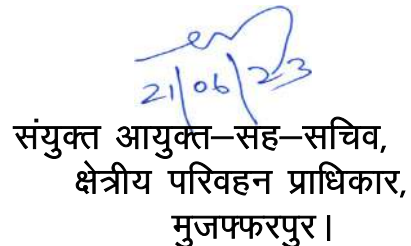 21/06/23
संयुक्त आयुक्त–सह–सचिव,
क्षेत्रीय परिवहन प्राधिकार,
मुजफ्फरपुर।